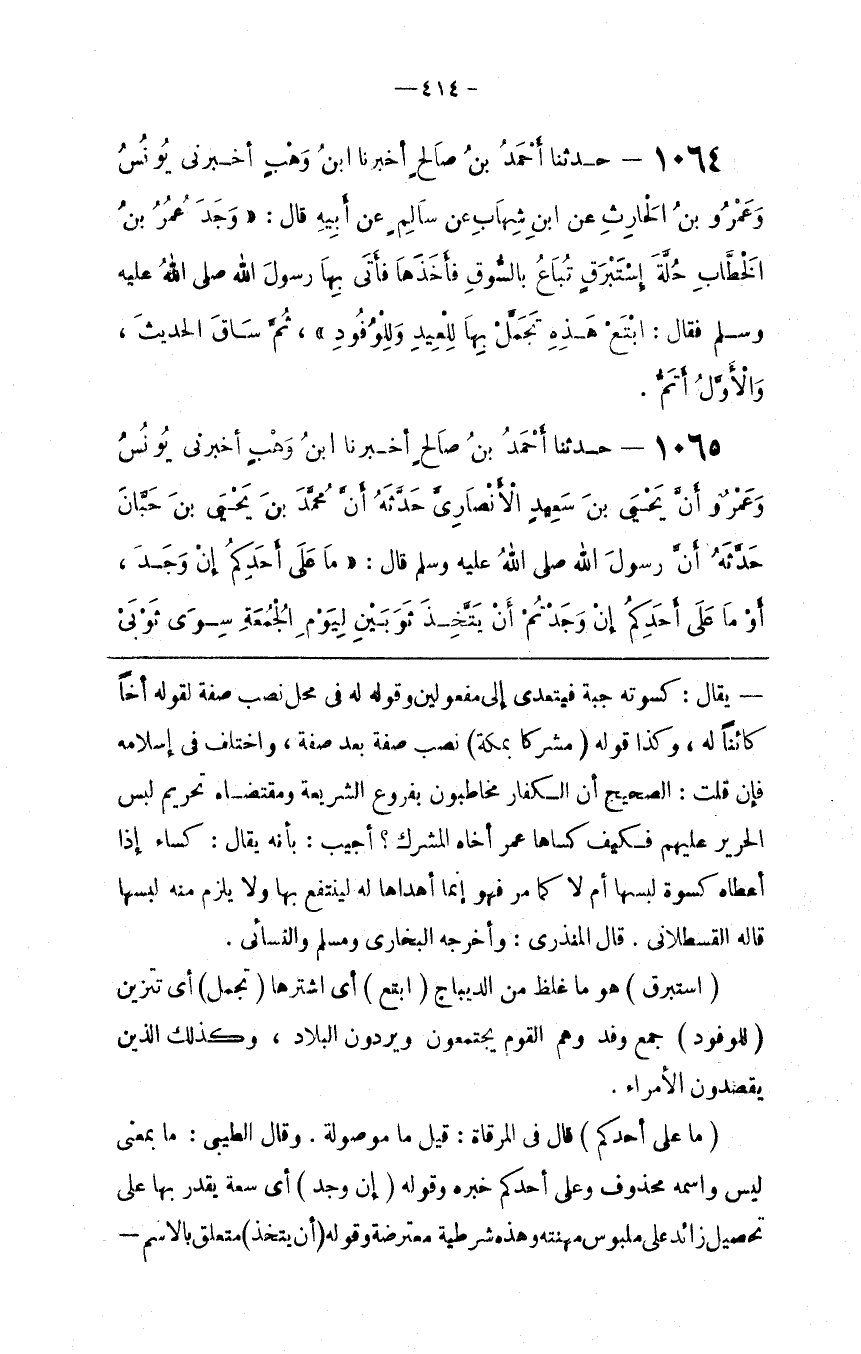 — ٤١٤ —
١٠٦٤ — حدثنا أَحْمَدُ بنُ صَالحٍ أخبرنا ابنُ وَهْبٍ أخبرنى يُونُسُ
وَعَمْرُو بنُ الْحَارِثِ عن ابنِ شِهَابٍ عن سَالِمٍ عن أَبِيهِ قال : « وَجَدَ عُمَرُ بنُ
الْخَطَّابِ حُلَّةَ إِسْتَبْرَقٍ تُبَاعُ بالسُّوقِ فَأَخَذَهَا فَأَتَى بِهَا رسولَ الله صلى اللهُ عليه
وسلم فقال : ابْتَعْ هَذِهِ تَجَمَّلْ بِهَا لِلْعِيدِ وَلِلْوُفُودِ » ، ثُمَّ سَاقَ الحديثَ ،
وَالْأَوَّلُ أَتَمُّ .
١٠٦٥ — حدثنا أَحْمَدُ بنُ صَالحٍ أخبرنا ابنُ وَهْبٍ أخبرنى يُونُسُ
وَعَمْرٌو أَنَّ يَحْيَى بنَ سَعِيدٍ الْأَنْصَارِىَّ حَدَّثَهُ أَنَّ مُحمَّدَ بنَ يَحْيَى بنَ حَبَّانَ
حَدَّثَهُ أَنَّ رسولَ الله صلى اللهُ عليه وسلم قال : « مَا عَلَى أَحَدِكُمْ إِنْ وَجَدَ ،
أَوْ مَا عَلَى أَحَدِكُمْ إِنْ وَجَدْتُمْ أَنْ يَتَّخِذَ ثَوْبَيْنِ لِيَوْمِ الْجُمُعَةِ سِوَى ثَوْبَىْ
— يقال : كسوته جبة فيتعدى إلى مفعولين وقوله له فى محل نصب صفة لقوله أخاً
كائناً له ، وكذا قوله ( مشركا بمكة ) نصب صفة بعد صفة ، واختلف فى إسلامه
فإن قلت : الصحيح أن الكفار مخاطبون بفروع الشريعة ومقتضاه تحريم لبس
الحرير عليهم فكيف كساها عمر أخاه المشرك ؟ أجيب : بأنه يقال : كساه إذا
أعطاه كسوة لبسها أم لا كما مر فهو إنما أهداها له لينتفع بها ولا يلزم منه لبسها
قاله القسطلانى . قال المنذرى : وأخرجه البخارى ومسلم والنسائى .
( استبرق ) هو ما غلظ من الديباج ( ابتع ) أى اشترها ( تجمل ) أى تتزين
( للوفود ) جمع وفد وهم القوم يجتمعون ويردون البلاد ، وكذلك الذين
يقصدون الأمراء .
( ما على أحدكم ) قال فى المرقاة : قيل ما موصولة . وقال الطيبى : ما بمعنى
ليس واسمه محذوف وعلى أحدكم خبره وقوله ( إن وجد ) أى سعة يقدر بها على
تحصيل زائد على ملبوس مهنته وهذه شرطية معترضة وقوله ( أن يتخذ ) متعلق بالاسم —